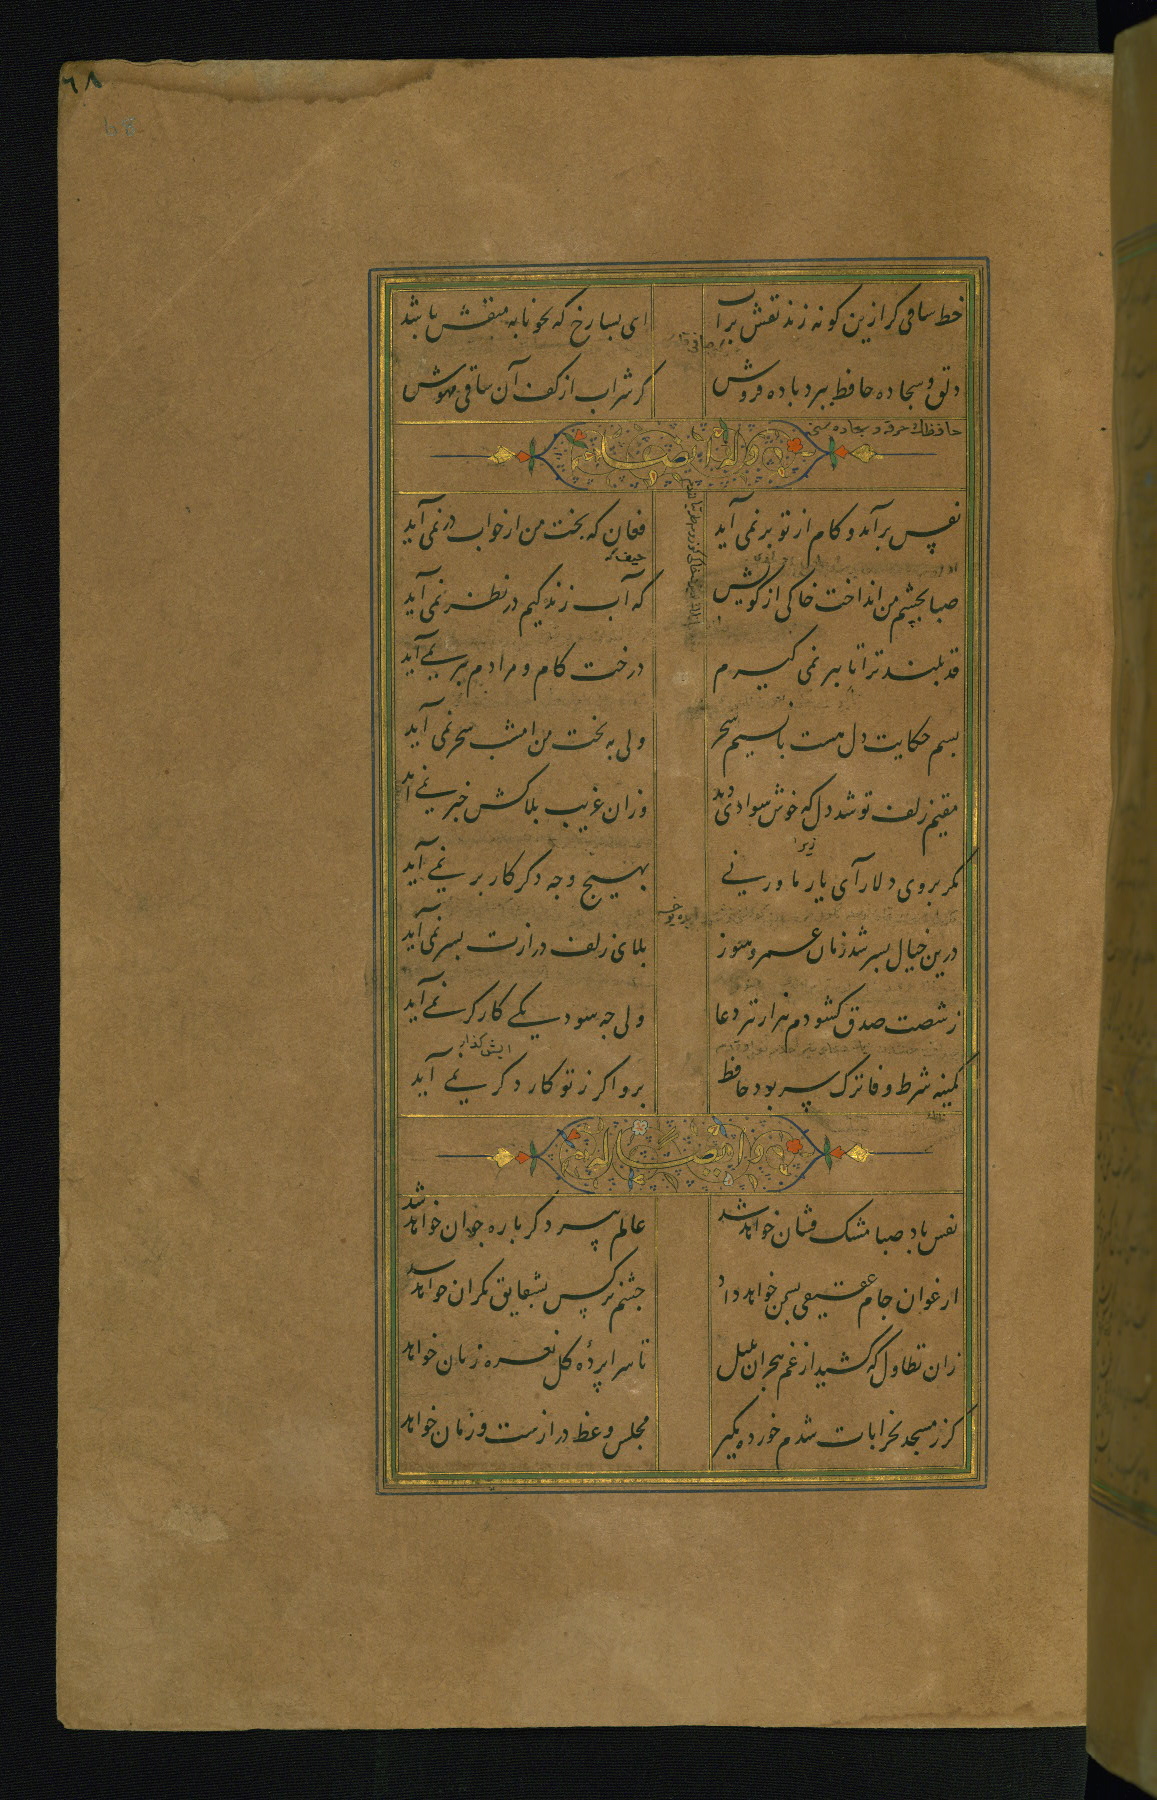 ٦٨
68
خط ساقی کر ازین کونه زند نقش بر آب ای بسا رخ که بخونابه منقش باشد
دلق و سجاده حافظ ببرد باده فروش کر شراب از کف آن ساقی مهوش
وله ایضا
نفس برآمد و کام از تو بر نمی آید فغان که بخت من از خواب در نمی آید
حیف که
صبا بچشم من انداخت خاکی از کویش که آب زندکیم در نظر نمی آید
قد بلند ترا تا ببر نمی کیرم درخت کام و مرادم ببر نمی آید
بسم حکایت دل هست با نسیم سحر ولی به بخت من امشب سحر نمی آید
مقیم زلف تو شد دل که خوش سوادی دید وزان غریب بلاکش خبر نمی آید
مکر بروی دلارای یار ما ورنی بهیچ وجه دکر کار بر نمی آید
درین خیال بسر شد زمان عمر و هنوز بلای زلف درازت بسر نمی آید
ز شصت صدق کشودم هزار تیر دعا ولی چه سود یکی کارکر نمی آید
کمینه شرط وفا ترک سر بود حافظ برو اکر ز تو کار دکر نمی آید
و ایضا له
نفس باد صبا مشک فشان خواهد شد عالم پیر دکر باره جوان خواهد شد
ارغوان جام عقیقی بسمن خواهد داد چشم نرکس بشقایق نکران خواهد شد
زان تطاول که کشید از غم هجران بلبل تا سراپردۀ کل نعره زنان خواهد
کر ز مسجد بخرابات شدم خورده مکیر مجلس وعظ درازست و زمان خواهد